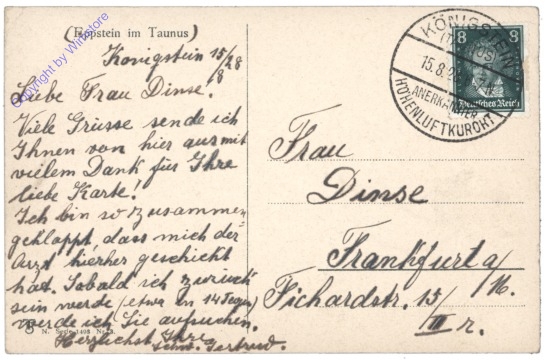 (Eppstein im Taunus)
Königstein 15/8 28
Liebe Frau Dinse!
Viele Grüsse sende ich
Ihnen von hier aus mit
vielem Dank für Ihre
liebe Karte!
Ich bin so zusammen
geklappt, dass mich der
Arzt hierher geschickt
hat. Sobald ich zurück
sein werde (etwa in 14 Tagen)
werde ich Sie aufsuchen.
Herzlichst Ihre
Gertrud.
N. Serie 1408 Nr. 8.
KÖNIGSTEIN
(TAUNUS)
15.8.28
ANERKANNTER
HÖHENLUFTKURORT
8 8
Deutsches Reich
Frau
Dinse
Frankfurt a/M.
Fichardstr. 15/
III r.
Copyright by Winstore